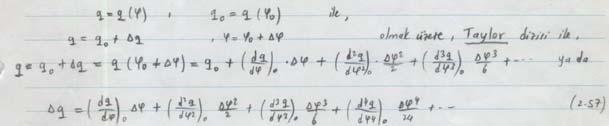 q = q(φ) , q₀ = q(φ₀) ile,
q = q₀ + Δq , φ = φ₀ + Δφ olmak üzere, Taylor dizisi ile,
q = q₀ + Δq = q(φ₀ + Δφ) = q₀ + (dq/dφ)₀ · Δφ + (d²q/dφ²)₀ · Δφ²/2 + (d³q/dφ³)₀ Δφ³/6 + ··· ya da
Δq = (dq/dφ)₀ Δφ + (d²q/dφ²)₀ Δφ²/2 + (d³q/dφ³)₀ Δφ³/6 + (d⁴q/dφ⁴)₀ Δφ⁴/24 + ··· (2-57)